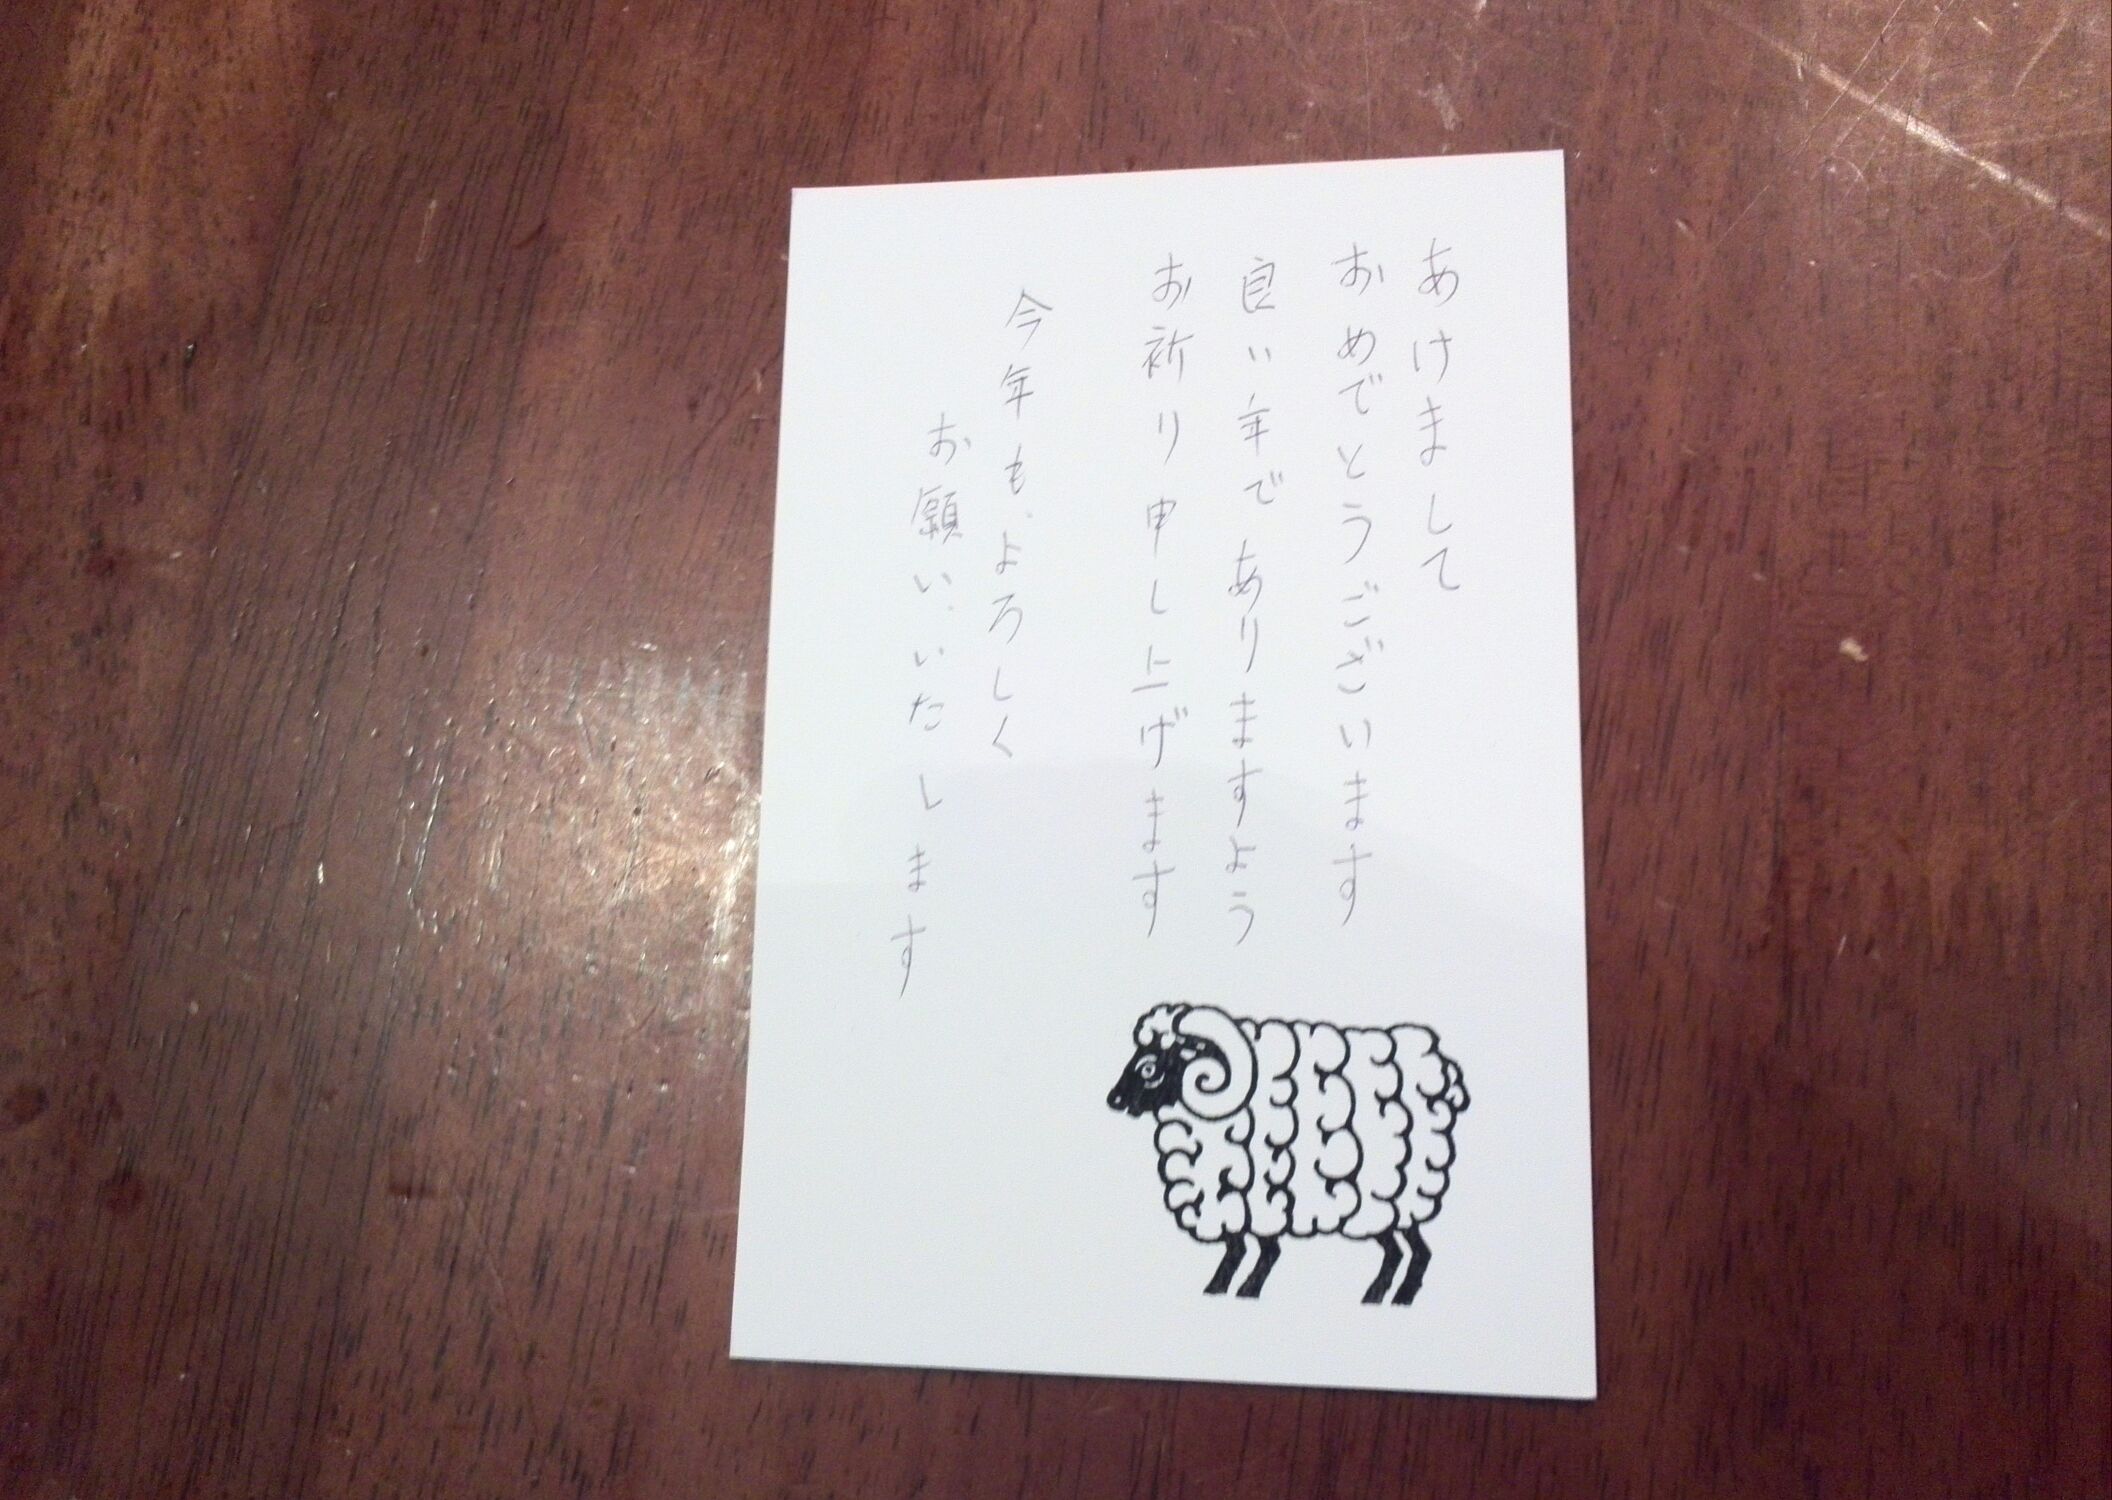 あけまして
おめでとうございます
良い年でありますよう
お祈り申し上げます
今年も、よろしく
お願い、いたします